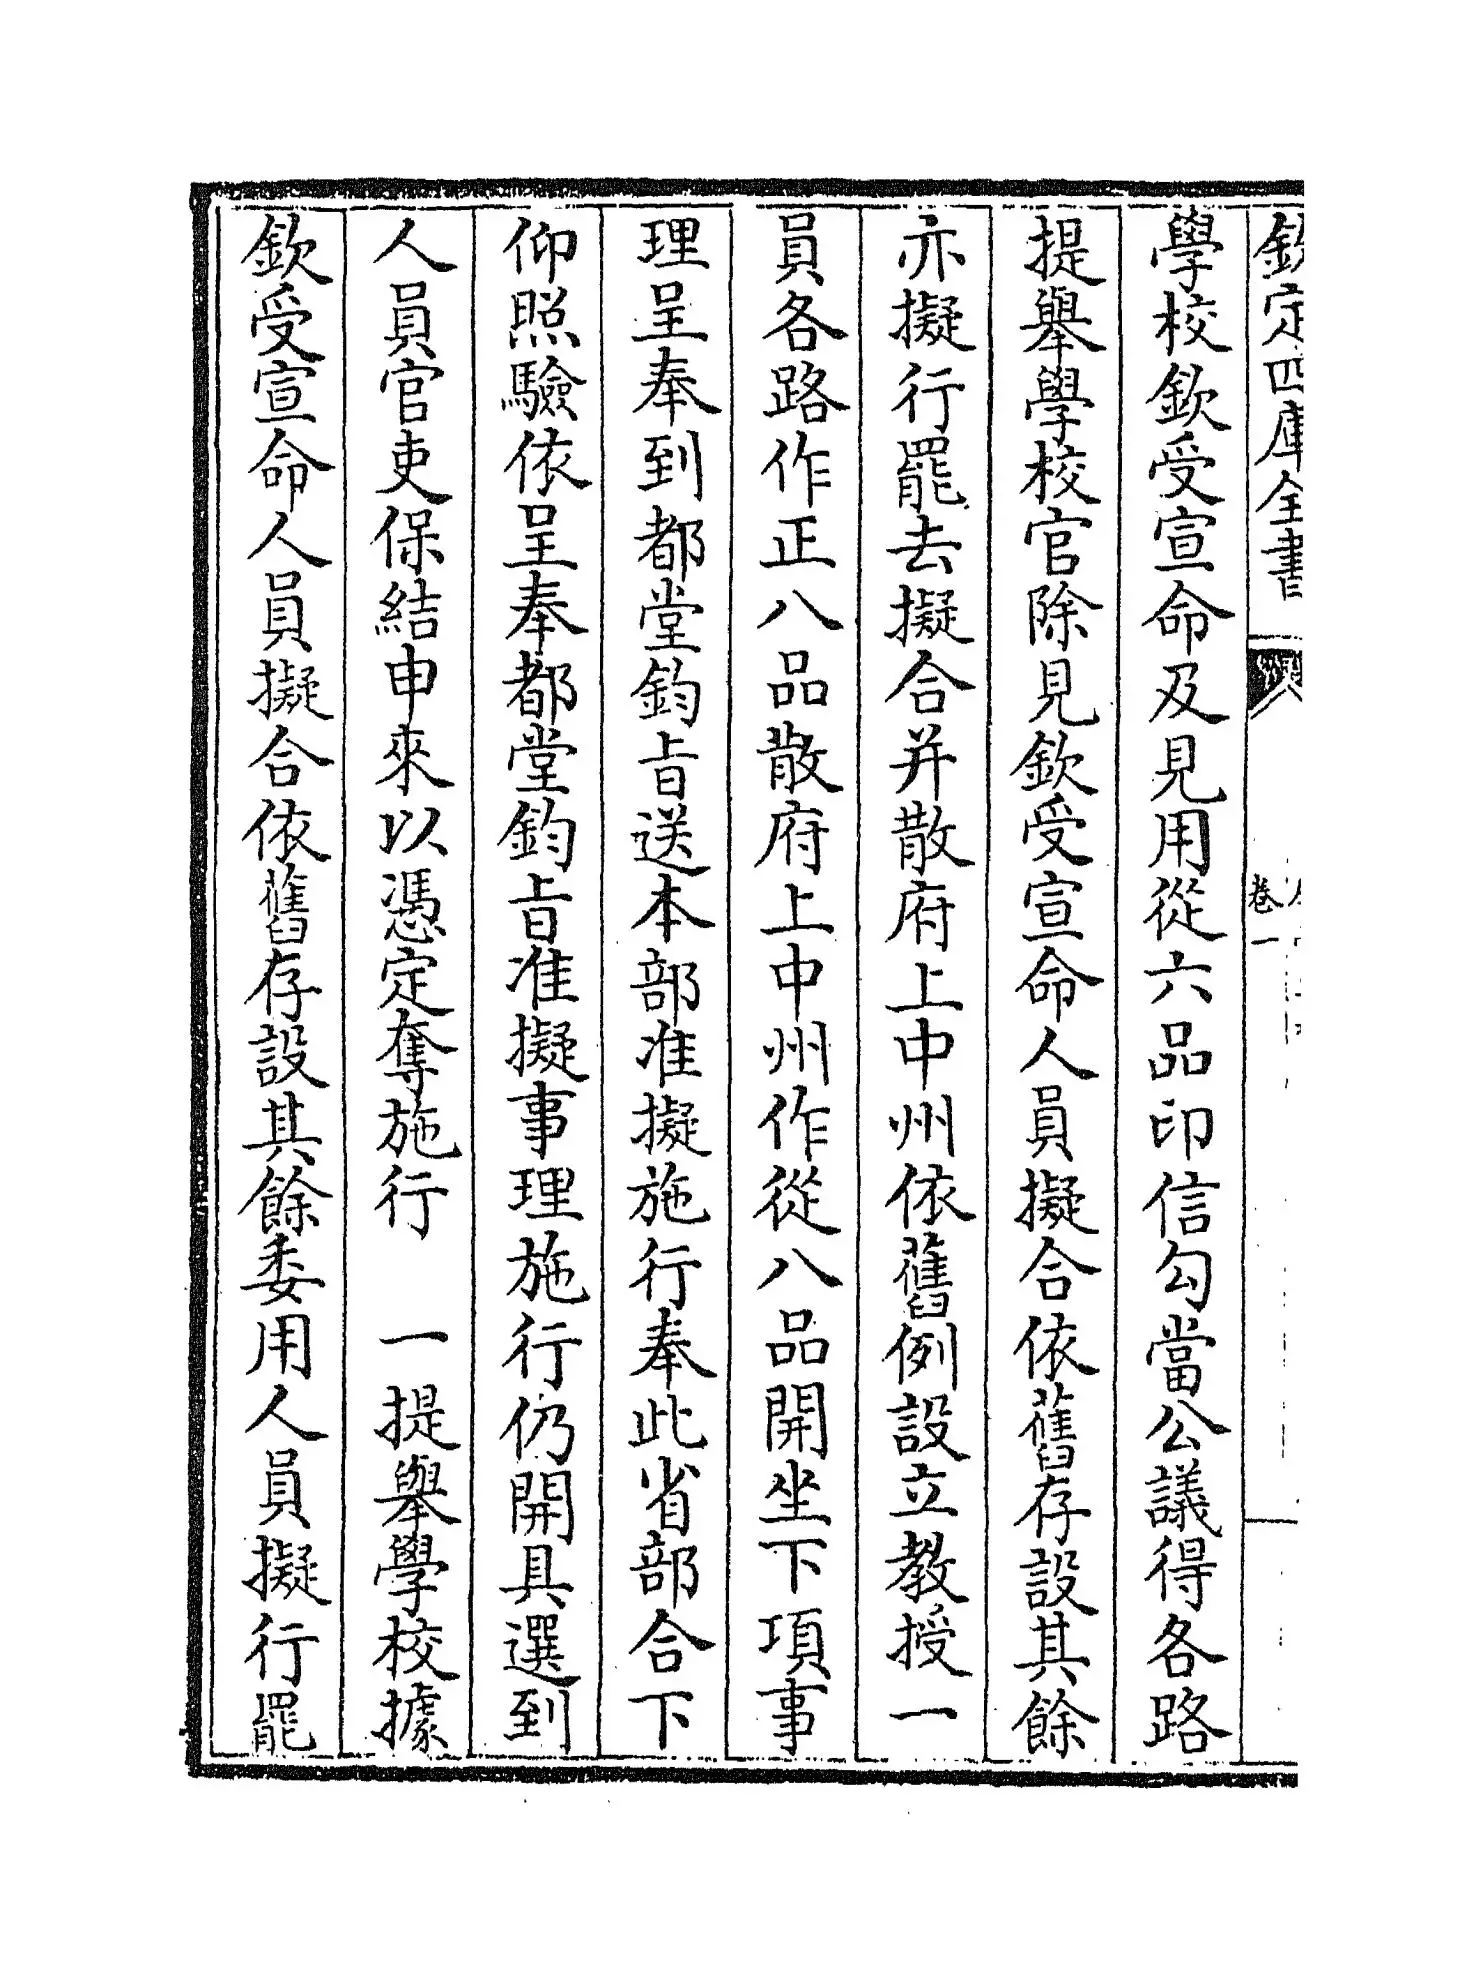 欽定四庫全書
卷一
學校欽受宣命及見用從六品印信勾當公議得各路
提舉學校官除見欽受宣命人員擬合依舊存設其餘
亦擬行罷去擬合并散府上中州依舊例設立教授一
員各路作正八品散府上中州作從八品開坐下項事
理呈奉到都堂鈞㫖送本部准擬施行奉此省部合下
仰照驗依呈奉都堂鈞㫖准擬事理施行仍開具選到
人員官吏保結申來以憑定奪施行　一提舉學校據
欽受宣命人員擬合依舊存設其餘委用人員擬行罷